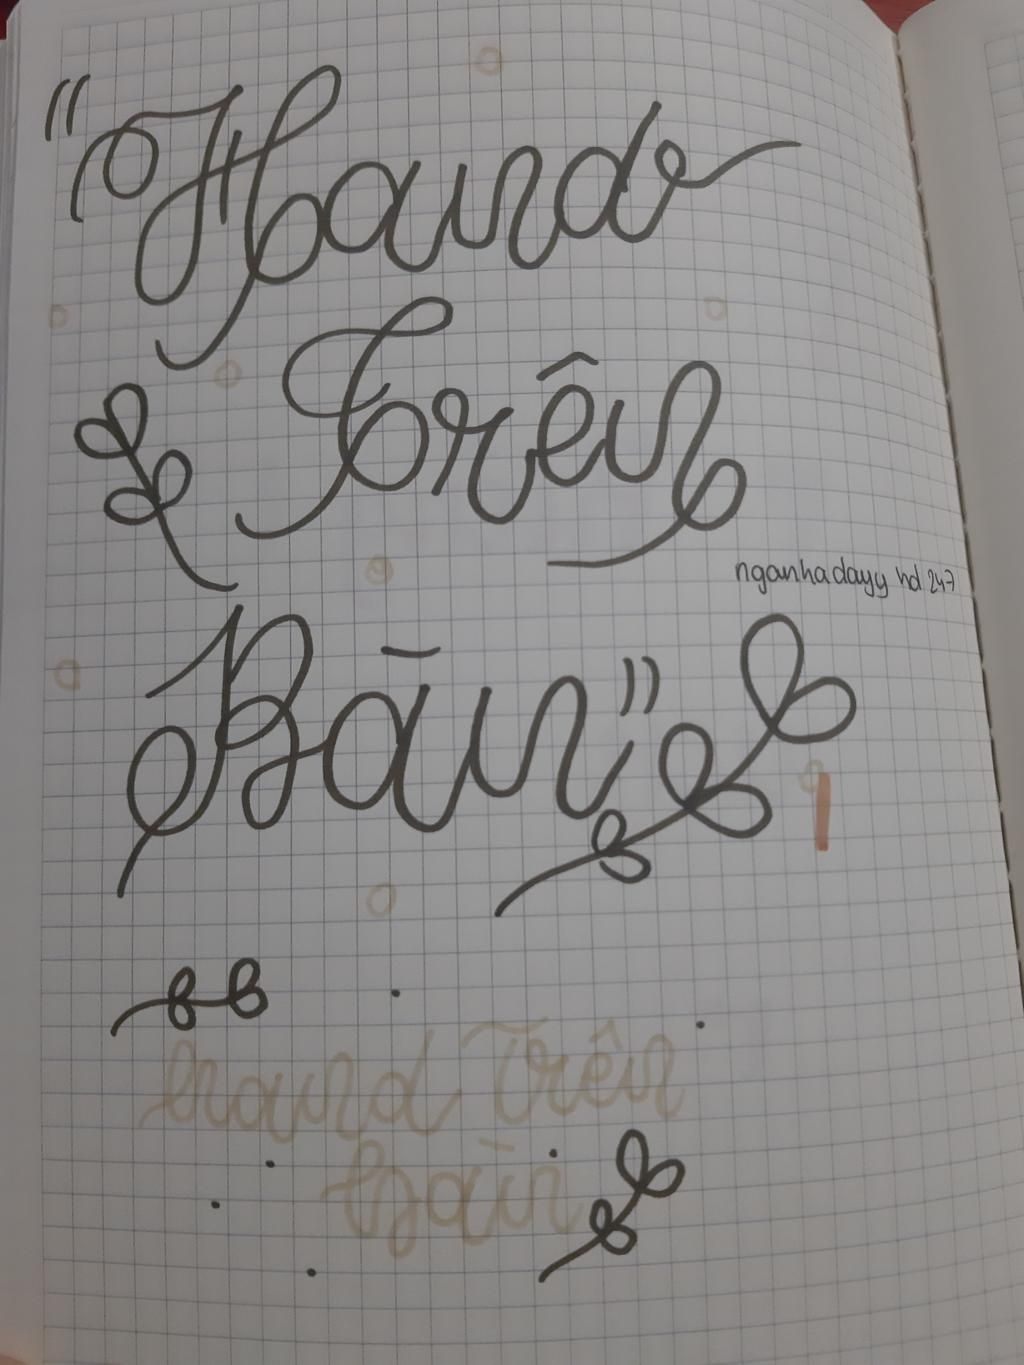 "Hand
Trên
Bān"
nganhadayy hd 247
hand Trên
bān